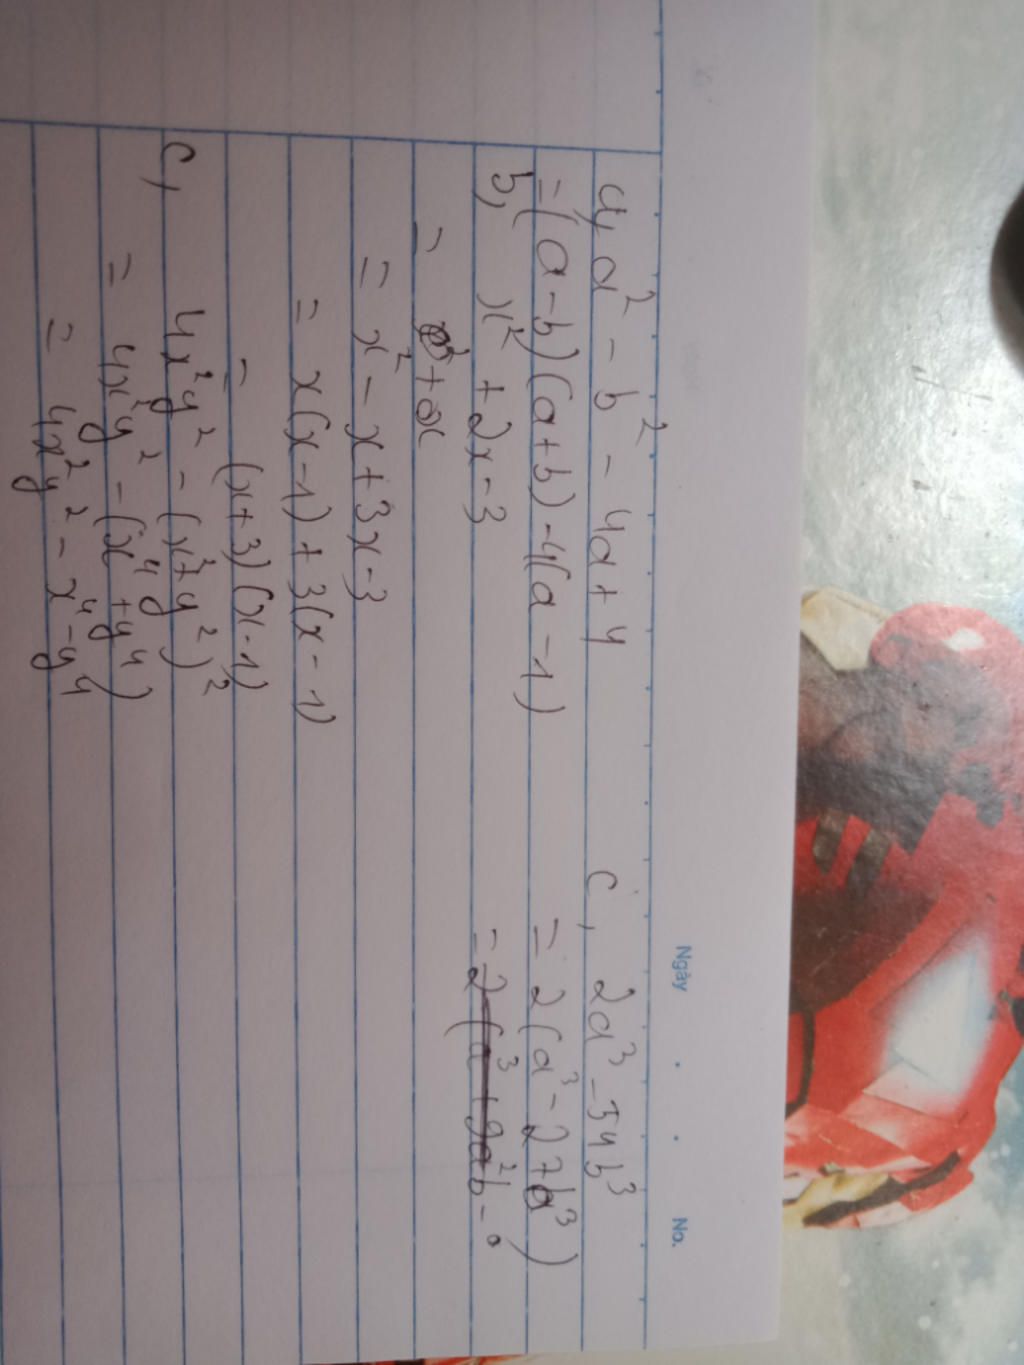 Ngày . . No.
a, a² - b² - 4a + 4
= (a - b)(a + b) - 4(a - 1)
b, x² + 2x - 3
= x² + 2x
= x² - x + 3x - 3
= x(x - 1) + 3(x - 1)
= (x + 3)(x - 1)
c, 4x²y² - (x² + y²)²
= 4x²y² - (x⁴ + y⁴)
= 4x²y² - x⁴ - y⁴
c, 2a³ - 54b³
= 2(a³ - 27b³)
= 2(a³ + 9a²b -